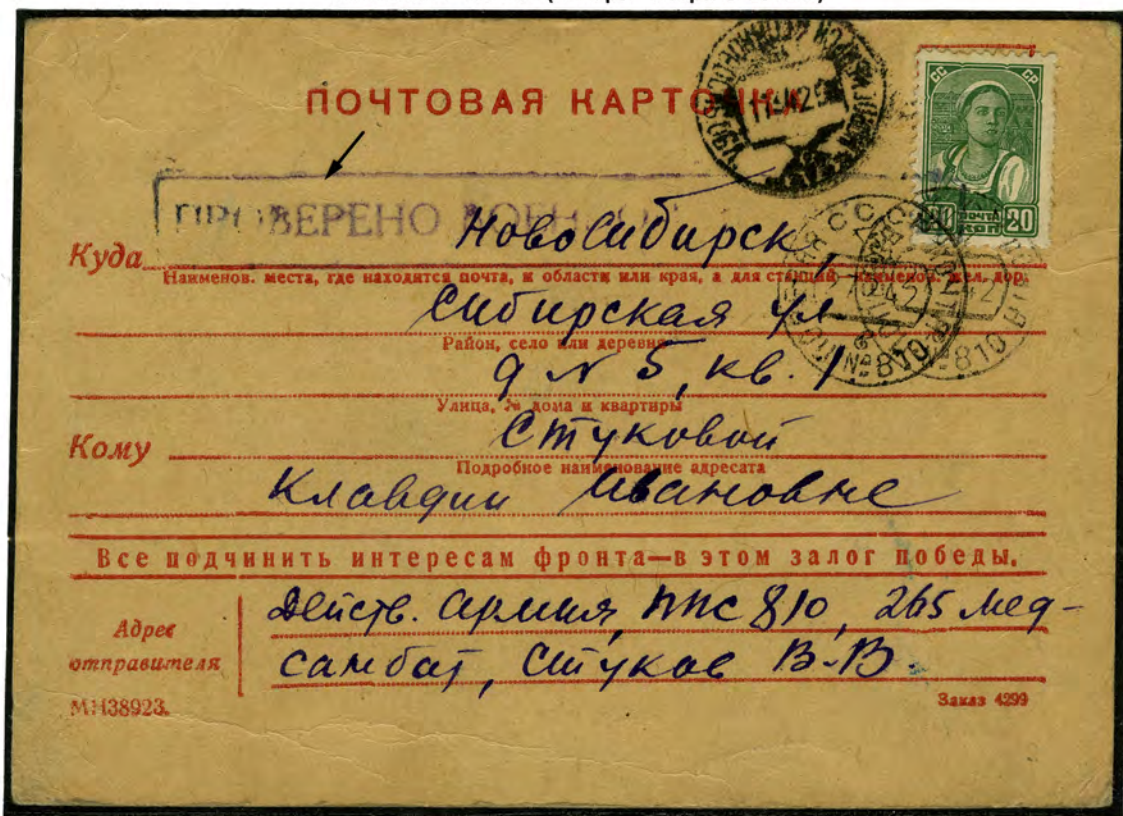 ПОЧТОВАЯ КАРТОЧКА
СС СР
20 ПОЧТА КОП 20
ПРОВЕРЕНО
Куда Новосибирск,
Наименов. места, где находится почта, и области или края, а для станций наименов. жел. дор.
Сибирская ул
Район, село или деревня
д № 5, кв. 1
Улица, № дома и квартиры
Кому Стуковой
Подробное наименование адресата
Клавдии Ивановне
№ 810
№ 810
Все подчинить интересам фронта—в этом залог победы.
Адрес отправителя
Действ. армия, ППС 810, 265 мед-
санбат, Стуков В.В.
МН38923.
Заказ 4299